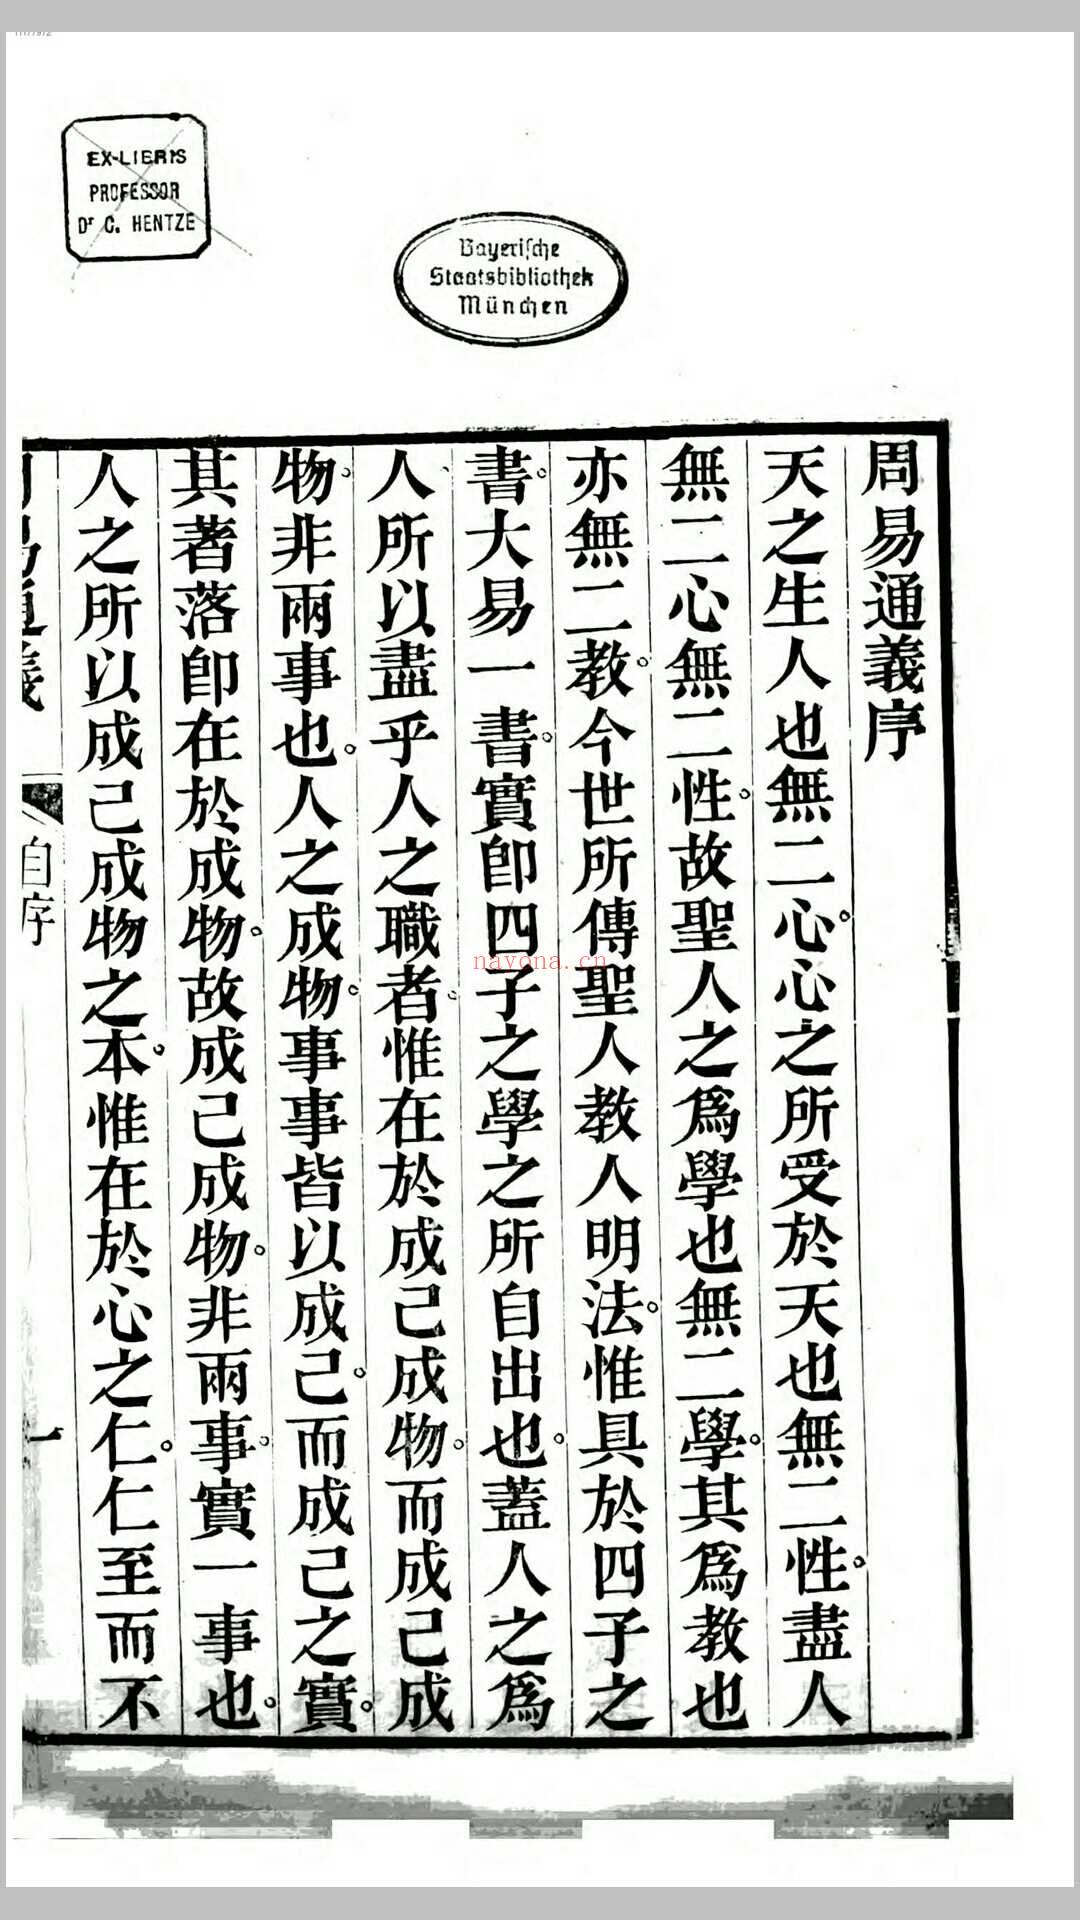 11177972
EX-LIBRIS
PROFESSOR
Dr C. HENTZE
Bayerische
Staatsbibliothek
München
周易通義序
天之生人也無二心。心之所受於天也無二性。盡人
無二心無二性。故聖人之爲學也無二學。其爲教也
亦無二教。今世所傳聖人教人明法。惟具於四子之
書。大易一書。實卽四子之學之所自出也。蓋人之爲
人、所以盡乎人之職者。惟在於成己成物。而成己成
物。非兩事也。人之成物。事事皆以成己。而成己之實。
其著落卽在於成物。故成己成物。非兩事。實一事也。
人之所以成己成物之本。惟在於心之仁。仁至而不
周易通義
自序
一
nayona.cn